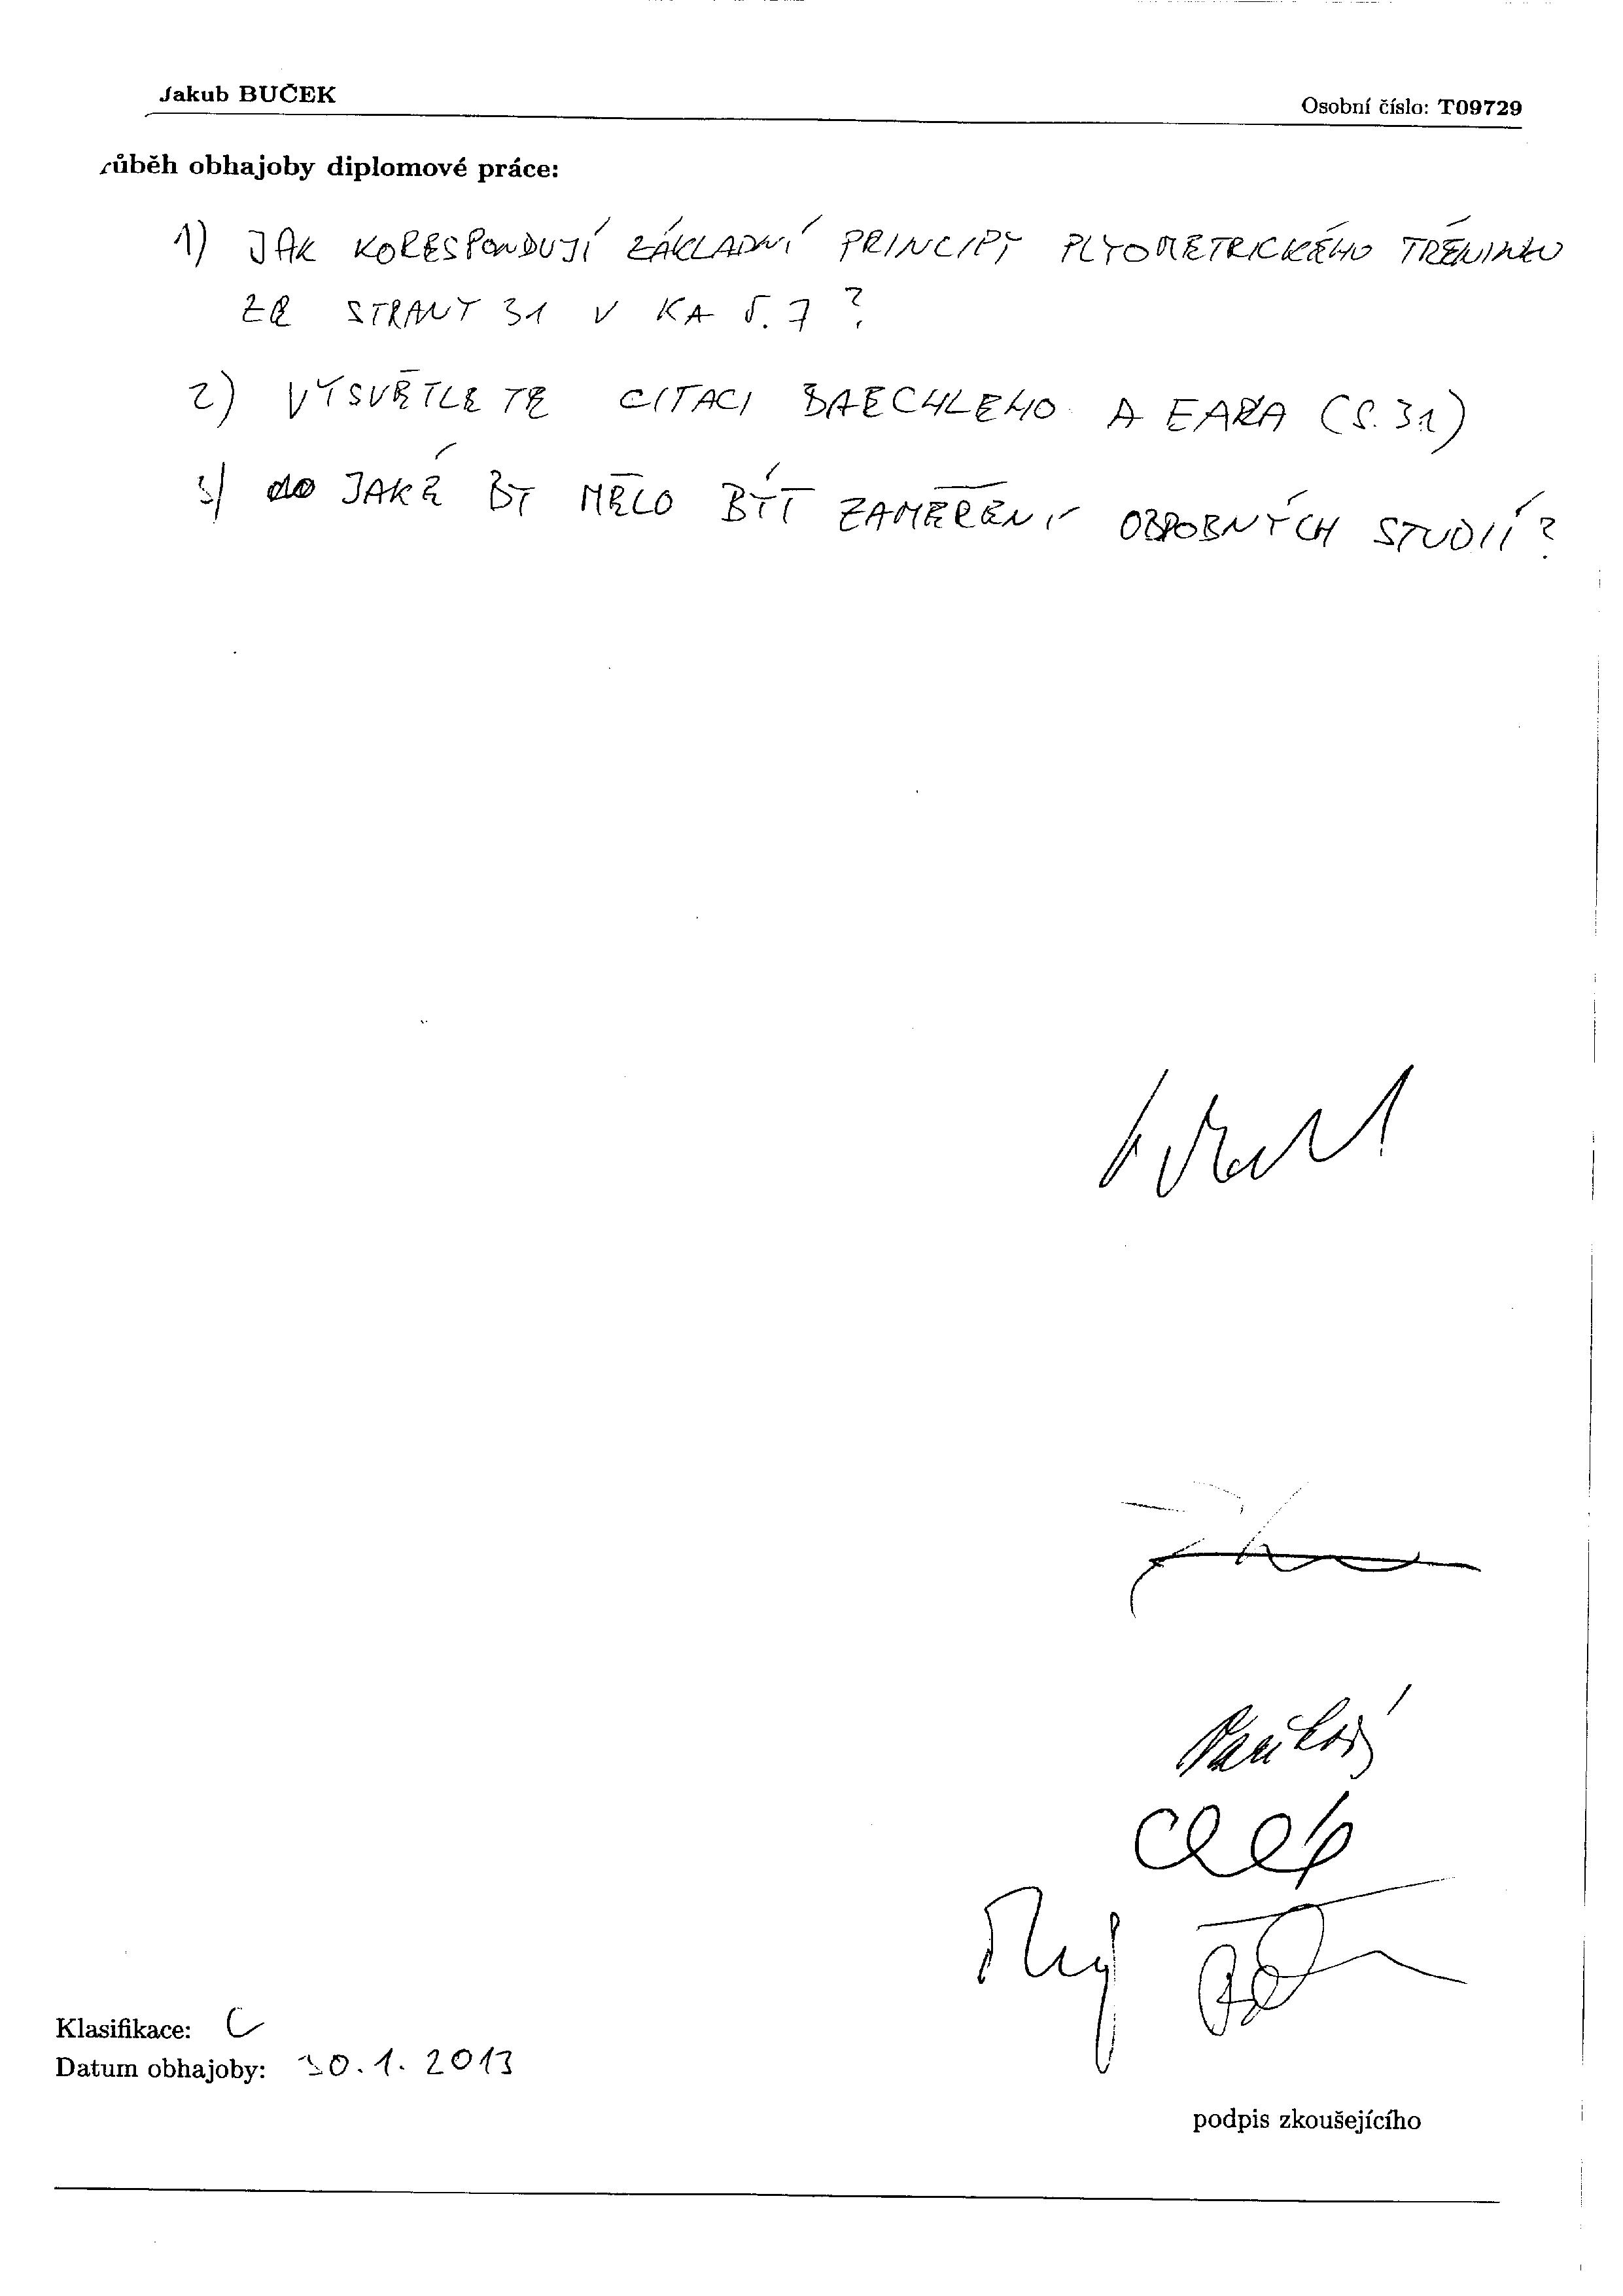 Jakub BUČEK
Osobní číslo: T09729
růběh obhajoby diplomové práce:
1) JAK KORESPONDUJÍ ZÁKLADNÍ PRINCIPY PLYOMETRICKÉHO TRÉNINKU
ZE STRANY 31 V KA 5.7?
2) VYSVĚTLETE CITACI BAECHLEHO A EARA (S. 31)
3) JAKÉ BY MĚLO BÝT ZAMĚŘENÍ OBDOBNÝCH STUDIÍ?
Klasifikace: C
Datum obhajoby: 30.1.2013
podpis zkoušejícího